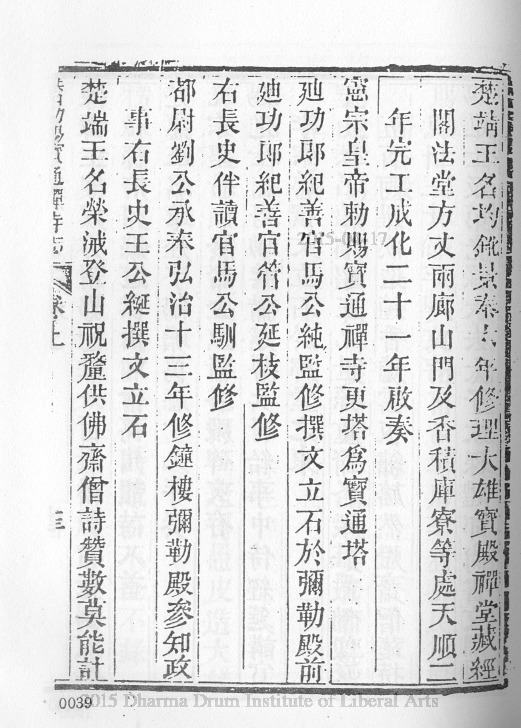 楚端王名均鈋景泰六年修理大雄寶殿禪堂藏經
閣法堂方丈兩廊山門及香積庫寮等處天順二
年完工成化二十一年啟奏
憲宗皇帝勅賜寶通禪寺更塔爲寶通塔
廸功郎紀善官馬公純監修撰文立石於彌勒殿前
廸功郎紀善官管公延枝監修
右長史伴讀官馬公馴監修
都尉劉公承奉弘治十三年修鐘樓彌勒殿參知政
事右長史王公綖撰文立石
楚端王名榮㳦登山祝釐供佛齋僧詩贊數莫能計
勅賜寶通禪寺志
卷上
三
0039
2015 Dharma Drum Institute of Liberal Arts